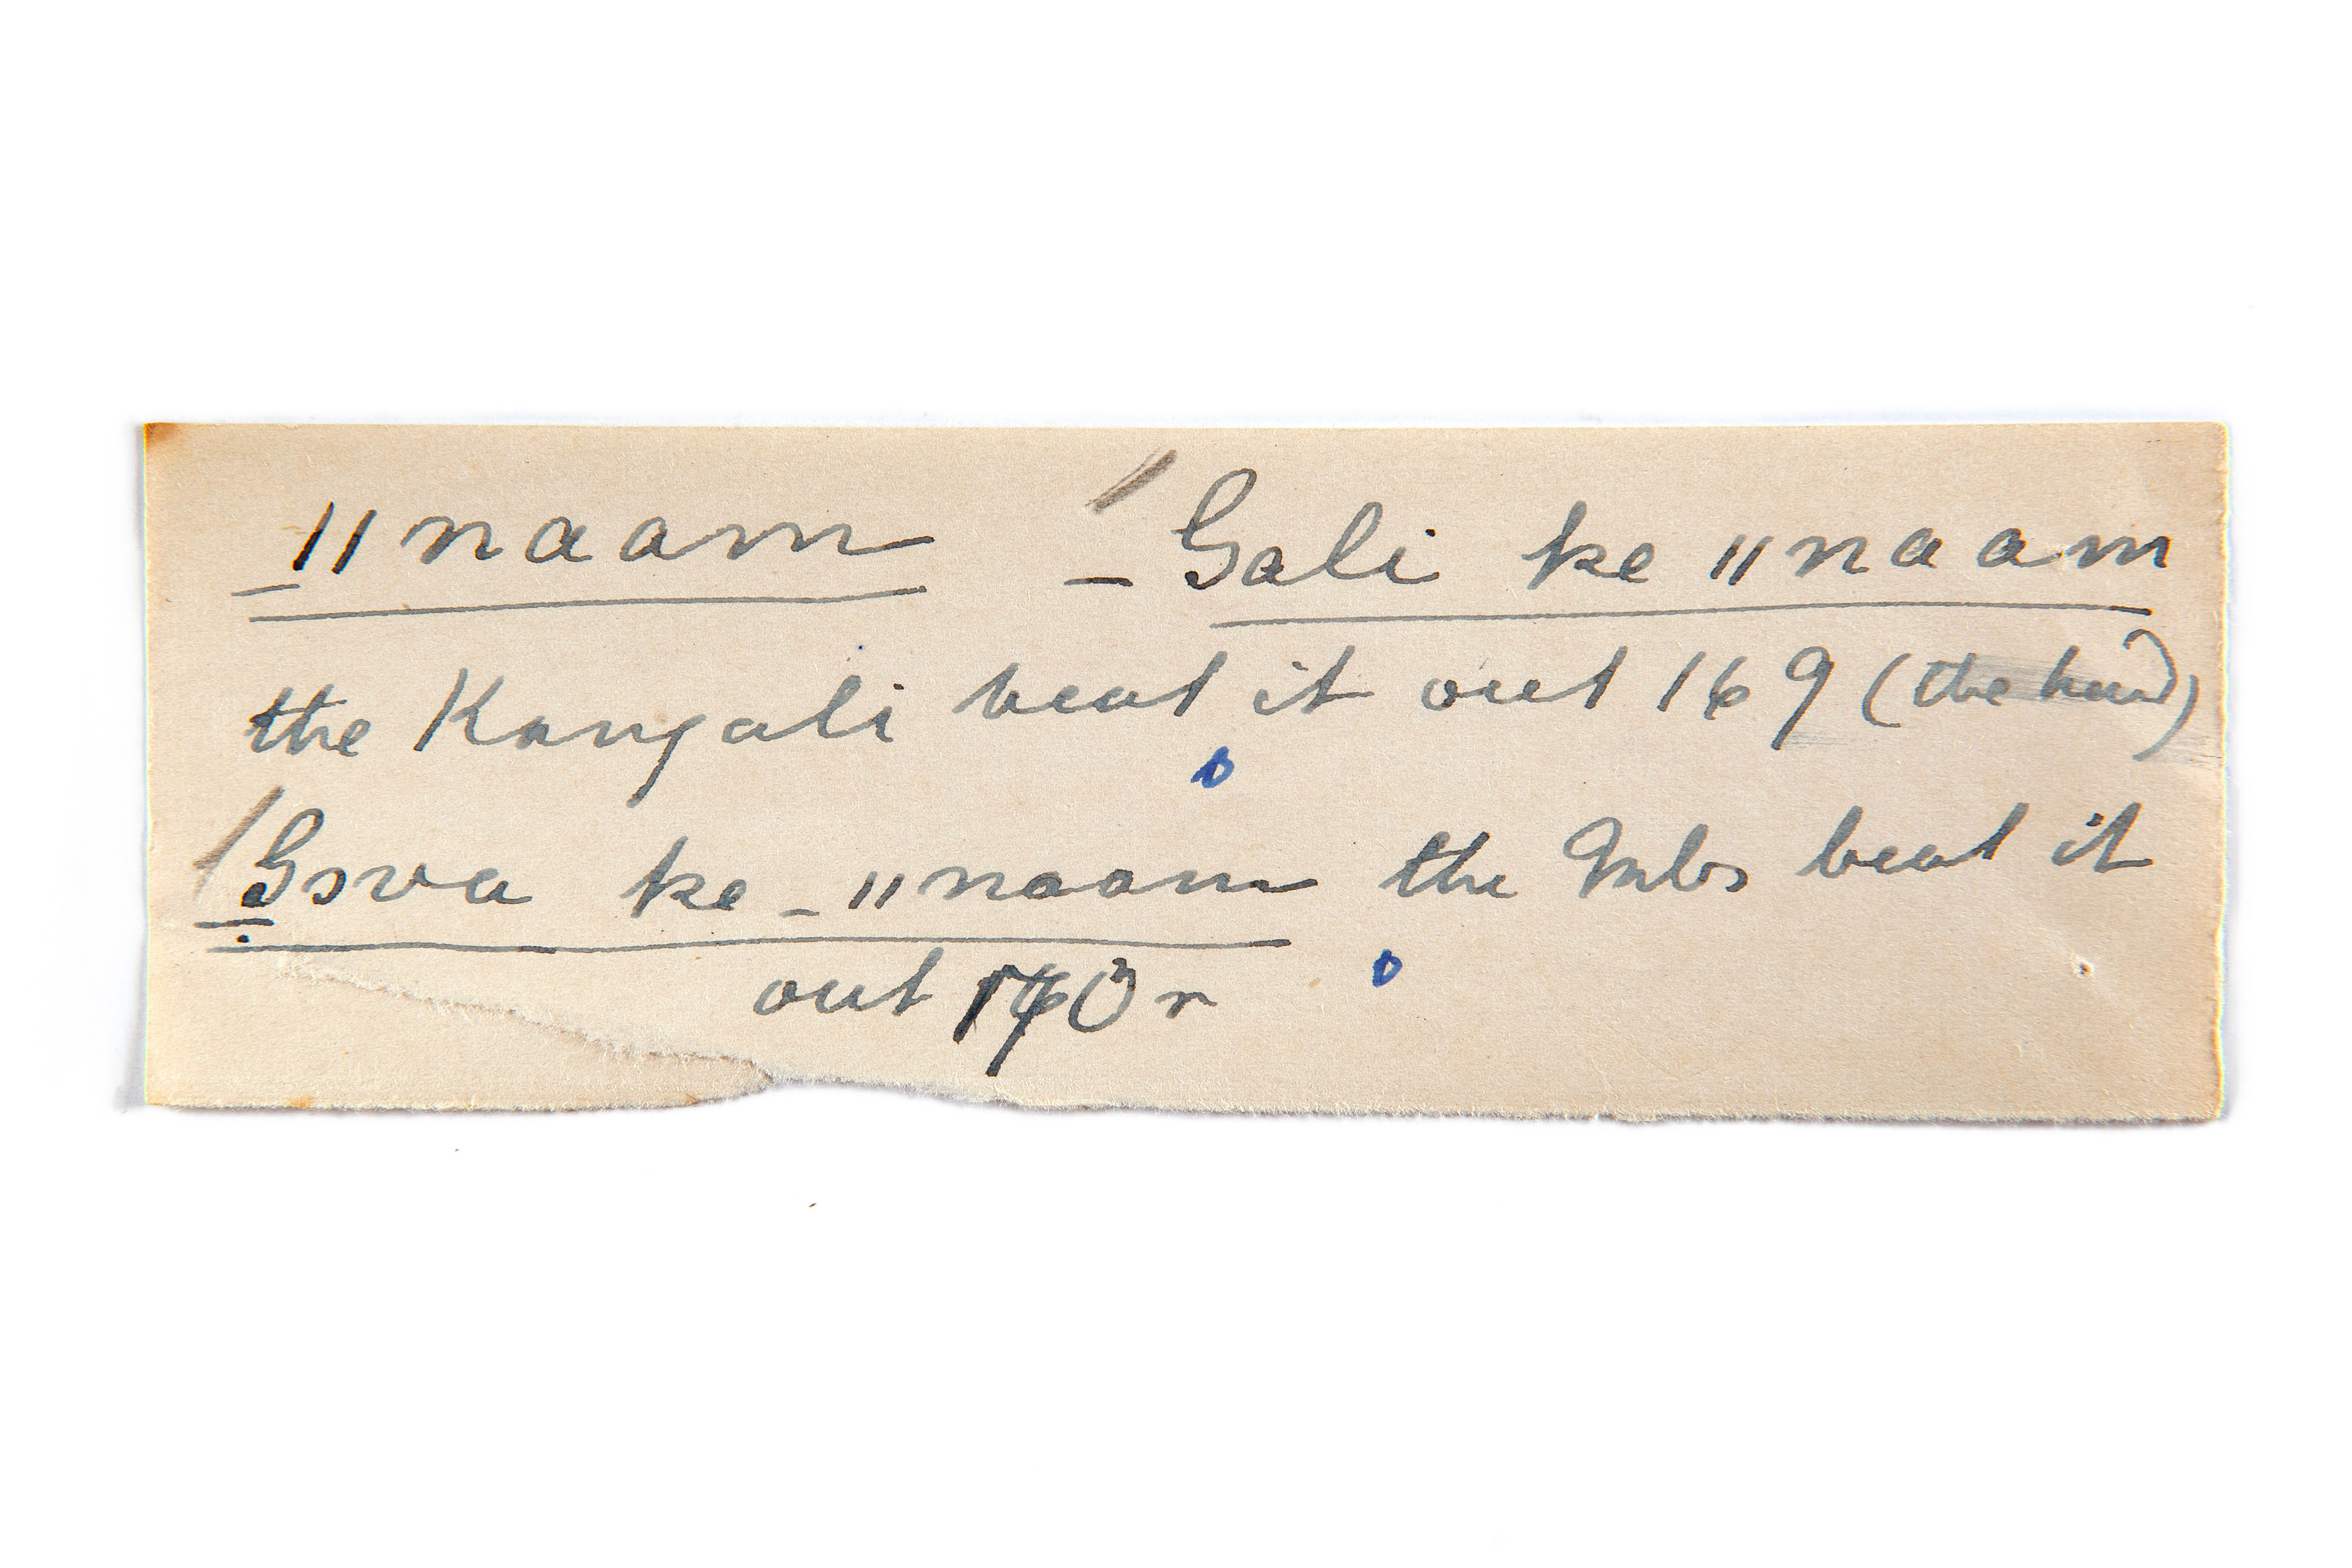 _ǁnaam – Gali ke ǁnaam
the Kangali beat it out 169 (the hand)
Gova ke _ǁnaam the Mbs beat it
out 170 r